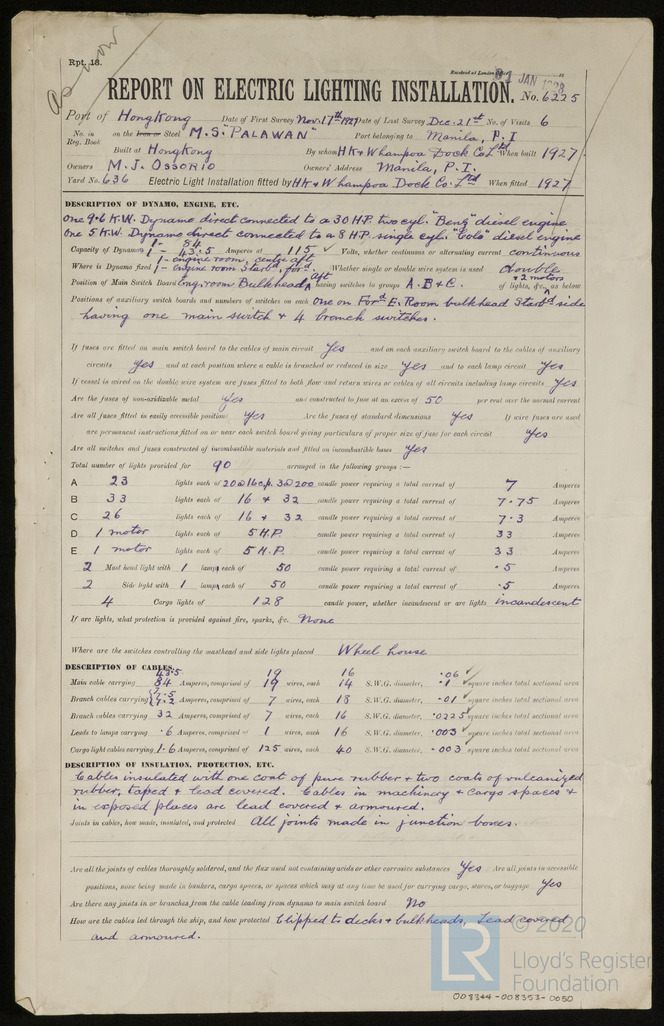 as now
Rpt. 13.
Received at London Office JAN 1928
REPORT ON ELECTRIC LIGHTING INSTALLATION. No. 6225
Port of Hongkong Date of First Survey Nov. 17th 1927 Date of Last Survey Dec. 21st No. of Visits 6
No. in Reg. Book on the Iron or Steel M.S. "PALAWAN" Port belonging to Manila, P.I
Built at Hongkong By whom HK & Whampoa Dock Co Ltd When built 1927.
Owners M. J. Ossorio Owners' Address Manila, P.I.
Yard No. 636 Electric Light Installation fitted by HK & Whampoa Dock Co. Ltd When fitted 1927
DESCRIPTION OF DYNAMO, ENGINE, ETC.
One 9.6 K.W. Dynamo direct connected to a 30 H.P. two cyl. "Benz" diesel engine
One 5 K.W. Dynamo direct connected to a 8 H.P. single cyl. "Colo" diesel engine
Capacity of Dynamos 1- 84 1- 43.5 Amperes at 115 Volts, whether continuous or alternating current continuous
Where is Dynamo fixed 1- engine room, centre aft 1- engine room Starbd. ford. Whether single or double wire system is used double
Position of Main Switch Board Eng. room Bulkhead Aft having switches to groups A. B & C. & 2 motors of lights, &c., as below
Positions of auxiliary switch boards and numbers of switches on each One on Ford E. Room bulkhead Starbd side
having one main switch & 4 branch switches.
If fuses are fitted on main switch board to the cables of main circuit Yes and on each auxiliary switch board to the cables of auxiliary
circuits Yes and at each position where a cable is branched or reduced in size Yes and to each lamp circuit Yes
If vessel is wired on the double wire system are fuses fitted to both flow and return wires or cables of all circuits including lamp circuits Yes
Are the fuses of non-oxidizable metal Yes and constructed to fuse at an excess of 50 per cent over the normal current
Are all fuses fitted in easily accessible positions Yes Are the fuses of standard dimensions Yes If wire fuses are used
are permanent instructions fitted on or near each switch board giving particulars of proper size of fuse for each circuit Yes
Are all switches and fuses constructed of incombustible materials and fitted on incombustible bases Yes
Total number of lights provided for 90 arranged in the following groups :—
A 23 lights each of 20@16c.p. 3@200 candle power requiring a total current of 7 Amperes
B 33 lights each of 16 & 32 candle power requiring a total current of 7.75 Amperes
C 26 lights each of 16 & 32 candle power requiring a total current of 7.3 Amperes
D 1 motor lights each of 5 H.P. candle power requiring a total current of 33 Amperes
E 1 motor lights each of 5 H.P. candle power requiring a total current of 33 Amperes
2 Mast head light with 1 lamp each of 50 candle power requiring a total current of .5 Amperes
2 Side light with 1 lamp each of 50 candle power requiring a total current of .5 Amperes
4 Cargo lights of 128 candle power, whether incandescent or arc lights incandescent
If arc lights, what protection is provided against fire, sparks, &c. None
Where are the switches controlling the masthead and side lights placed Wheel house
DESCRIPTION OF CABLES.
43.5 19 16 .06
Main cable carrying 84 Amperes, comprised of 19 wires, each 14 S.W.G. diameter, .1 square inches total sectional area
Branch cables carrying 7.5 7.2 Amperes, comprised of 7 wires, each 18 S.W.G. diameter, .01 square inches total sectional area
Branch cables carrying 32 Amperes, comprised of 7 wires, each 16 S.W.G. diameter, .0225 square inches total sectional area
Leads to lamps carrying .6 Amperes, comprised of 1 wires, each 16 S.W.G. diameter, .003 square inches total sectional area
Cargo light cables carrying 1.6 Amperes, comprised of 125 wires, each 40 S.W.G. diameter, .003 square inches total sectional area
DESCRIPTION OF INSULATION, PROTECTION, ETC.
Cables insulated with one coat of pure rubber & two coats of vulcanized
rubber, taped & lead covered. Cables in machinery & cargo spaces &
in exposed places are lead covered & armoured.
Joints in cables, how made, insulated, and protected All joints made in junction boxes.
Are all the joints of cables thoroughly soldered, and the flux used not containing acids or other corrosive substances Yes Are all joints in accessible
positions, none being made in bunkers, cargo spaces, or spaces which may at any time be used for carrying cargo, stores, or baggage Yes
Are there any joints in or branches from the cable leading from dynamo to main switch board No
How are the cables led through the ship, and how protected Clipped to decks & bulkheads, Lead covered
and armoured.
© 2020
LR Lloyd's Register
Foundation
008344-008353-0050